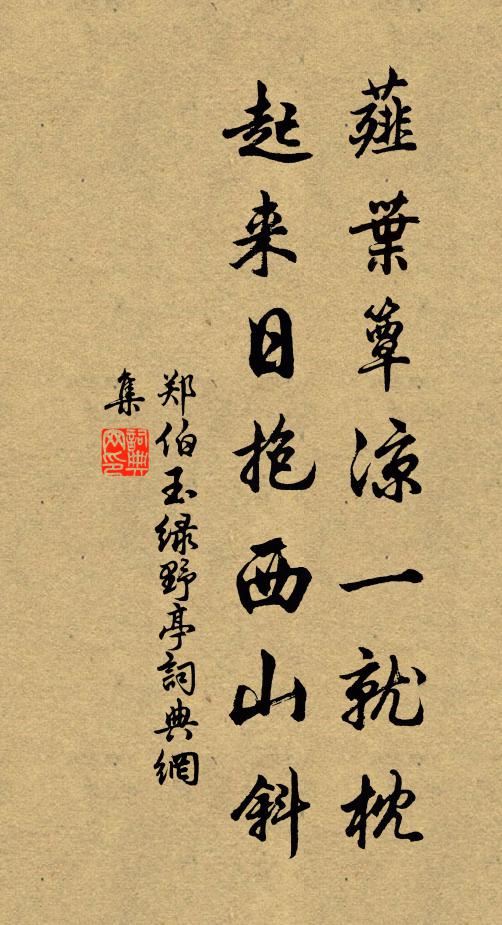 薤葉簟涼一就枕
起来日抱西山斜
郑伯玉緑野亭詞典網
集
詞典
网印